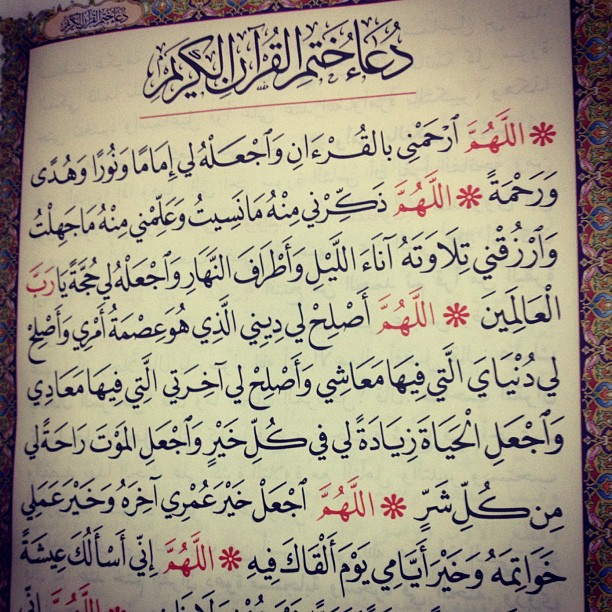 دعاء ختم القرآن الكريم
دُعَاءُ خَتْمِ الْقُرْآنِ الْكَرِيمِ
❋ اللَّهُمَّ ٱرْحَمْنِي بالقُرْءَانِ وَٱجْعَلْهُ لِي إِمَامًا وَنُورًا وَهُدًى
وَرَحْمَةً ❋ اللَّهُمَّ ذَكِّرْنِي مِنْهُ مَانَسِيتُ وَعَلِّمْنِي مِنْهُ مَاجَهِلْتُ
وَٱرْزُقْنِي تِلَاوَتَهُ آنَاءَ اللَّيْلِ وَأَطْرَافَ النَّهَارِ وَٱجْعَلْهُ لِي حُجَّةً يَارَبَّ
الْعَالَمِينَ ❋ اللَّهُمَّ أَصْلِحْ لِي دِينِي الَّذِي هُوَعِصْمَةُ أَمْرِي وَأَصْلِحْ
لِي دُنْيَايَ الَّتِي فِيهَا مَعَاشِي وَأَصْلِحْ لِي آخِرَتِي الَّتِي فِيهَا مَعَادِي
وَٱجْعَلِ الْحَيَاةَ زِيَادَةً لِي فِي كُلِّ خَيْرٍ وَٱجْعَلِ المَوْتَ رَاحَةً لِي
مِن كُلِّ شَرٍّ ❋ اللَّهُمَّ ٱجْعَلْ خَيْرَ عُمْرِي آخِرَهُ وَخَيْرَ عَمَلِي
خَوَاتِمَهُ وَخَيْرَ أَيَّامِي يَوْمَ أَلْقَاكَ فِيهِ ❋ اللَّهُمَّ إِنِّي أَسْأَلُكَ عِيشَةً
❋ اللَّهُمَّ إِنِّي